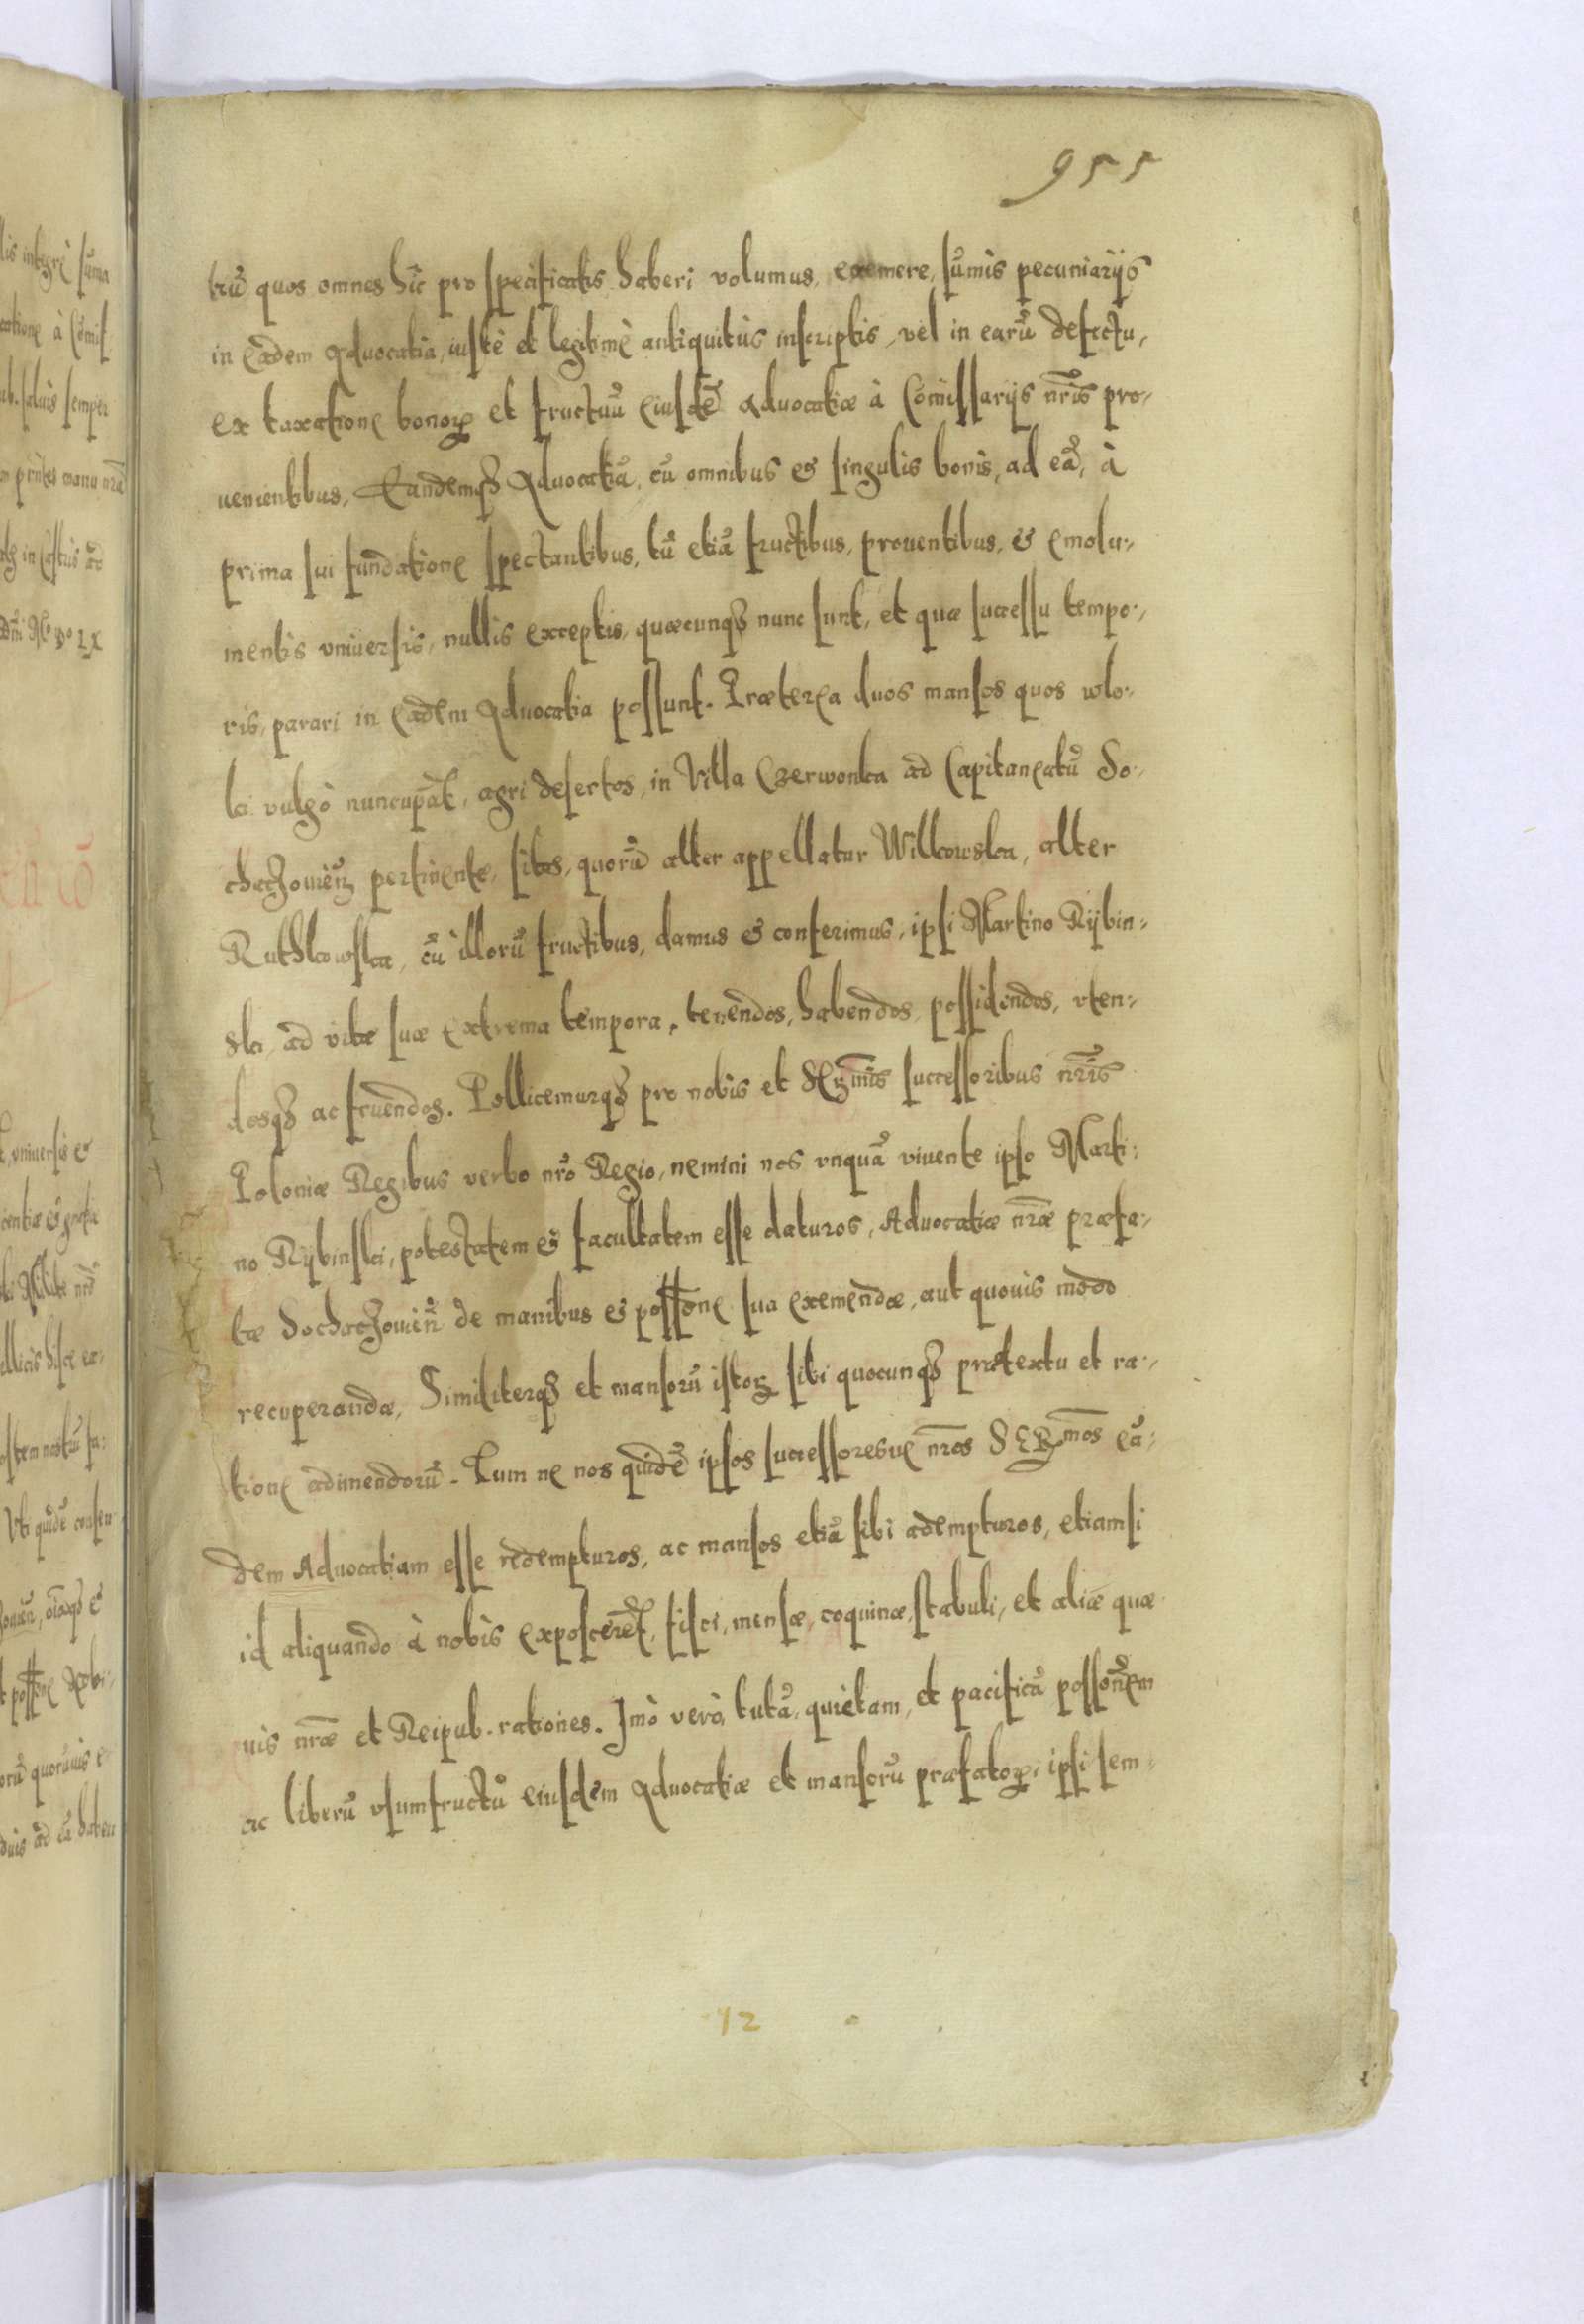 955
trũ quos omnes hîc pro specificatis haberi volumus, exemere, sũmis pecuniarijs
in eadem Aduocatia, iustè et legitimè antiquitùs inscriptis, vel in earũ defectu,
ex taxatione bonoꝝ et fructuũ eiusdẽ Aduocatiæ à Cõmissarijs nr̃is pro-
uenientibus, Eandemqꝫ Aduocatiã, cũ omnibus et singulis bonis, ad eã, à
prima sui fundatione spectantibus, tũ etiã fructibus, prouentibus, et emolu-
mentis vniuersis, nullis exceptis, quæcunqꝫ nunc sunt, et quæ successu tempo-
ris, parari in eadem Aduocatia possunt. Præterea duos mansos quos wlo-
ki vulgò nuncupãt, agri desertos, in Villa Czerwonka ad Capitaneatũ So-
chaczouieñ pertinente, sitos, quorũ alter appellatur Wilkowska, alter
Ruthkowska, cũ illorũ fructibus, damus et conferimus, ipsi Martino Rÿbin-
ski, ad vitæ suæ extrema tempora, tenendos, habendos, possidendos, vten-
dosqꝫ ac fruendos. Pollicemurqꝫ pro nobis et Ser̃mis successoribus nr̃is
Poloniæ Regibus verbo nr̃o Regio, nemini nos vnquã viuente ipso Marti-
no Rÿbinski, potestatem et facultatem esse daturos, Aduocatiæ nr̃æ præfa-
tæ Sochaczouieñ de manibus et possẽone sua exemendæ, aut quouis modo
recuperandæ, Similiterqꝫ et mansorũ istoꝝ sibi quocunqꝫ prætextu et ra-
tione adimendorũ. Tum ne nos quidẽ ipsos successoresue nr̃os SERmos eã-
dem Aduocatiam esse redempturos, ac mansos etiã sibi adempturos, etiamsi
id aliquando à nobis exposcerẽt, fisci, mensæ, coquinæ, stabuli, et aliæ quæ-
uis nr̃æ et Reipub. rationes. Imò verò, tutã, quietam, et pacificã possõnem
ac liberũ vsumfructũ eiusdem Aduocatiæ et mansorũ præfatoꝝ, ipsi sem-
12